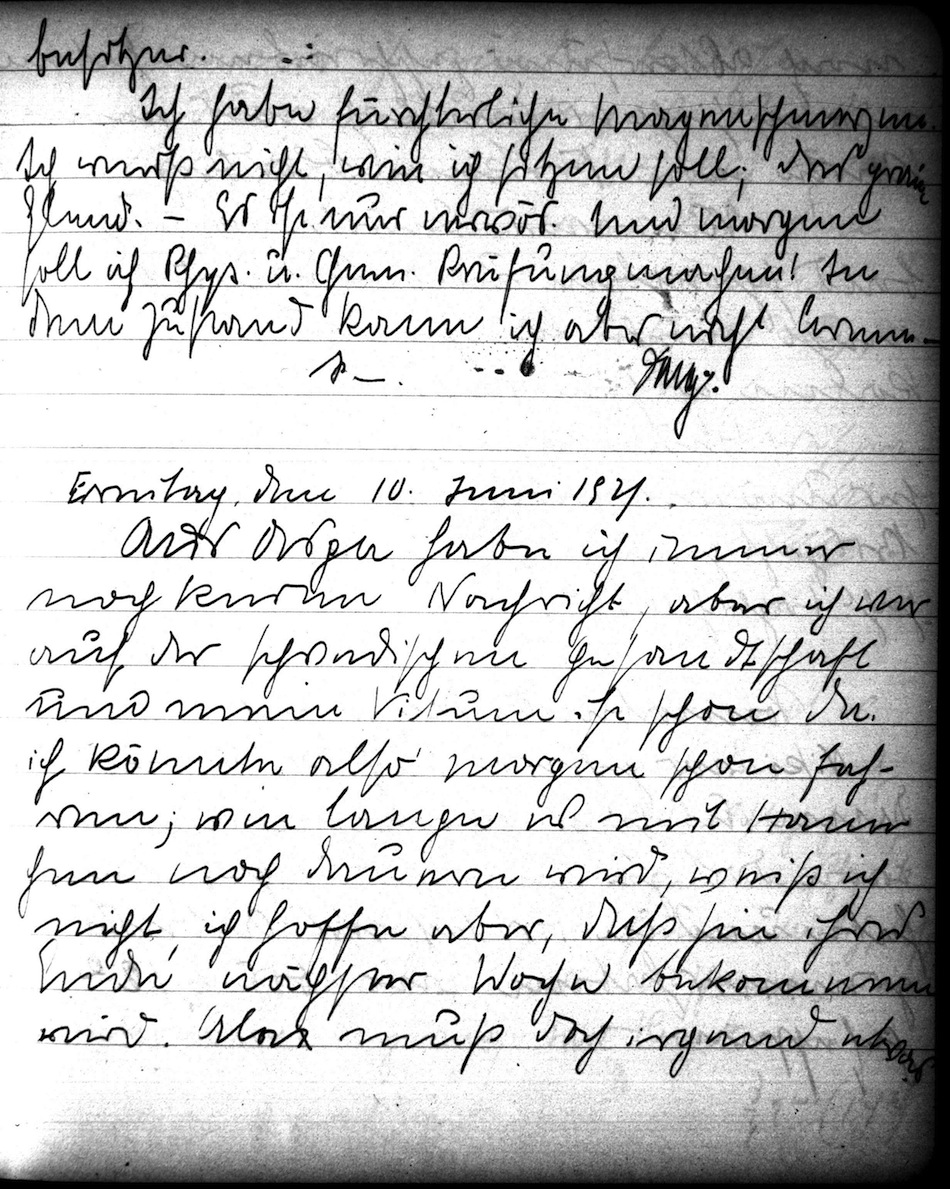 besitzer.
Ich habe fürchterliche Magenschmerzen.
Ich weiß nicht, wie ich sitzen soll; das graue
Elend. – Es ist nur nervös. Und morgen
soll ich Phys. u. Chem. Prüfung machen! In
dem Zustand kann ich aber nicht lernen.–
Freitag, den 10. Juni 1921.
Aus habe ich immer
noch keine Nachricht, aber ich war
auf der schwedischen Gesandtschaft
und mein Visum ist schon da.
ich könnte also morgen schon fah-
ren; wie lange es mit Hann
chen noch dauern wird, weiß ich
nicht, ich hoffe aber, daß sie ihres
Ende nächster Woche bekommen
wird. muß doch irgend etwas